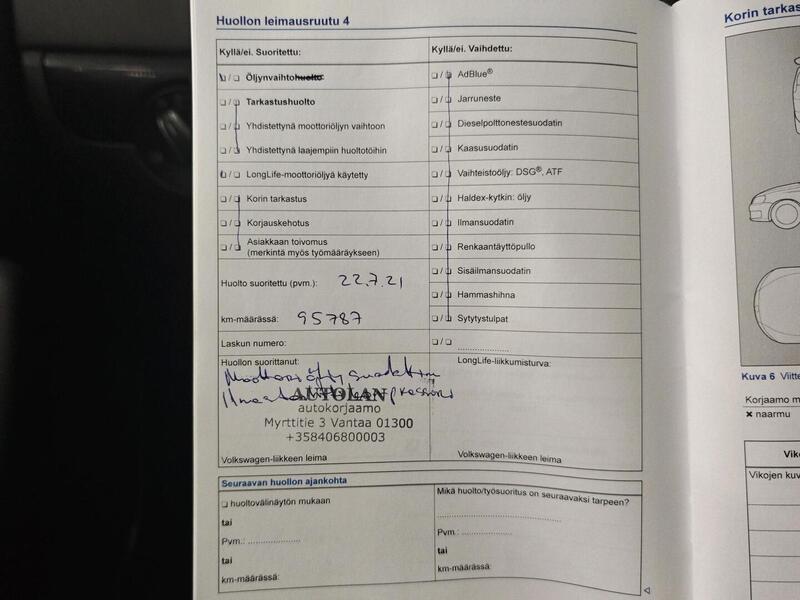 Huollon leimausruutu 4
Kyllä/ei. Suoritettu:
Öljynvaihtohuolto
Tarkastushuolto
Yhdistettynä moottoriöljyn vaihtoon
Yhdistettynä laajempiin huoltotöihin
LongLife-moottoriöljyä käytetty
Korin tarkastus
Korjauskehotus
Asiakkaan toivomus
(merkintä myös työmääräykseen)
Huolto suoritettu (pvm.): 22.7.21
km-määrässä: 95787
Laskun numero:
Huollon suorittanut:
Moottoriöljy suodatin
AUTOLAN
autokorjaamo
Myrttitie 3 Vantaa 01300
+358406800003
Volkswagen-liikkeen leima
Kyllä/ei. Vaihdettu:
AdBlue®
Jarruneste
Dieselpolttonestesuodatin
Kaasusuodatin
Vaihteistoöljy: DSG®, ATF
Haldex-kytkin: öljy
Ilmansuodatin
Renkaantäyttöpullo
Sisäilmansuodatin
Hammashihna
Sytytystulpat
LongLife-liikkumisturva:
Volkswagen-liikkeen leima
Seuraavan huollon ajankohta
huoltovälinäytön mukaan
tai
Pvm.:
tai
km-määrässä:
Mikä huolto/työsuoritus on seuraavaksi tarpeen?
Pvm.:
tai
km-määrässä:
Korin tarkas
Kuva 6 Viitte
Korjaamo m
× naarmu
Vik
Vikojen kuv